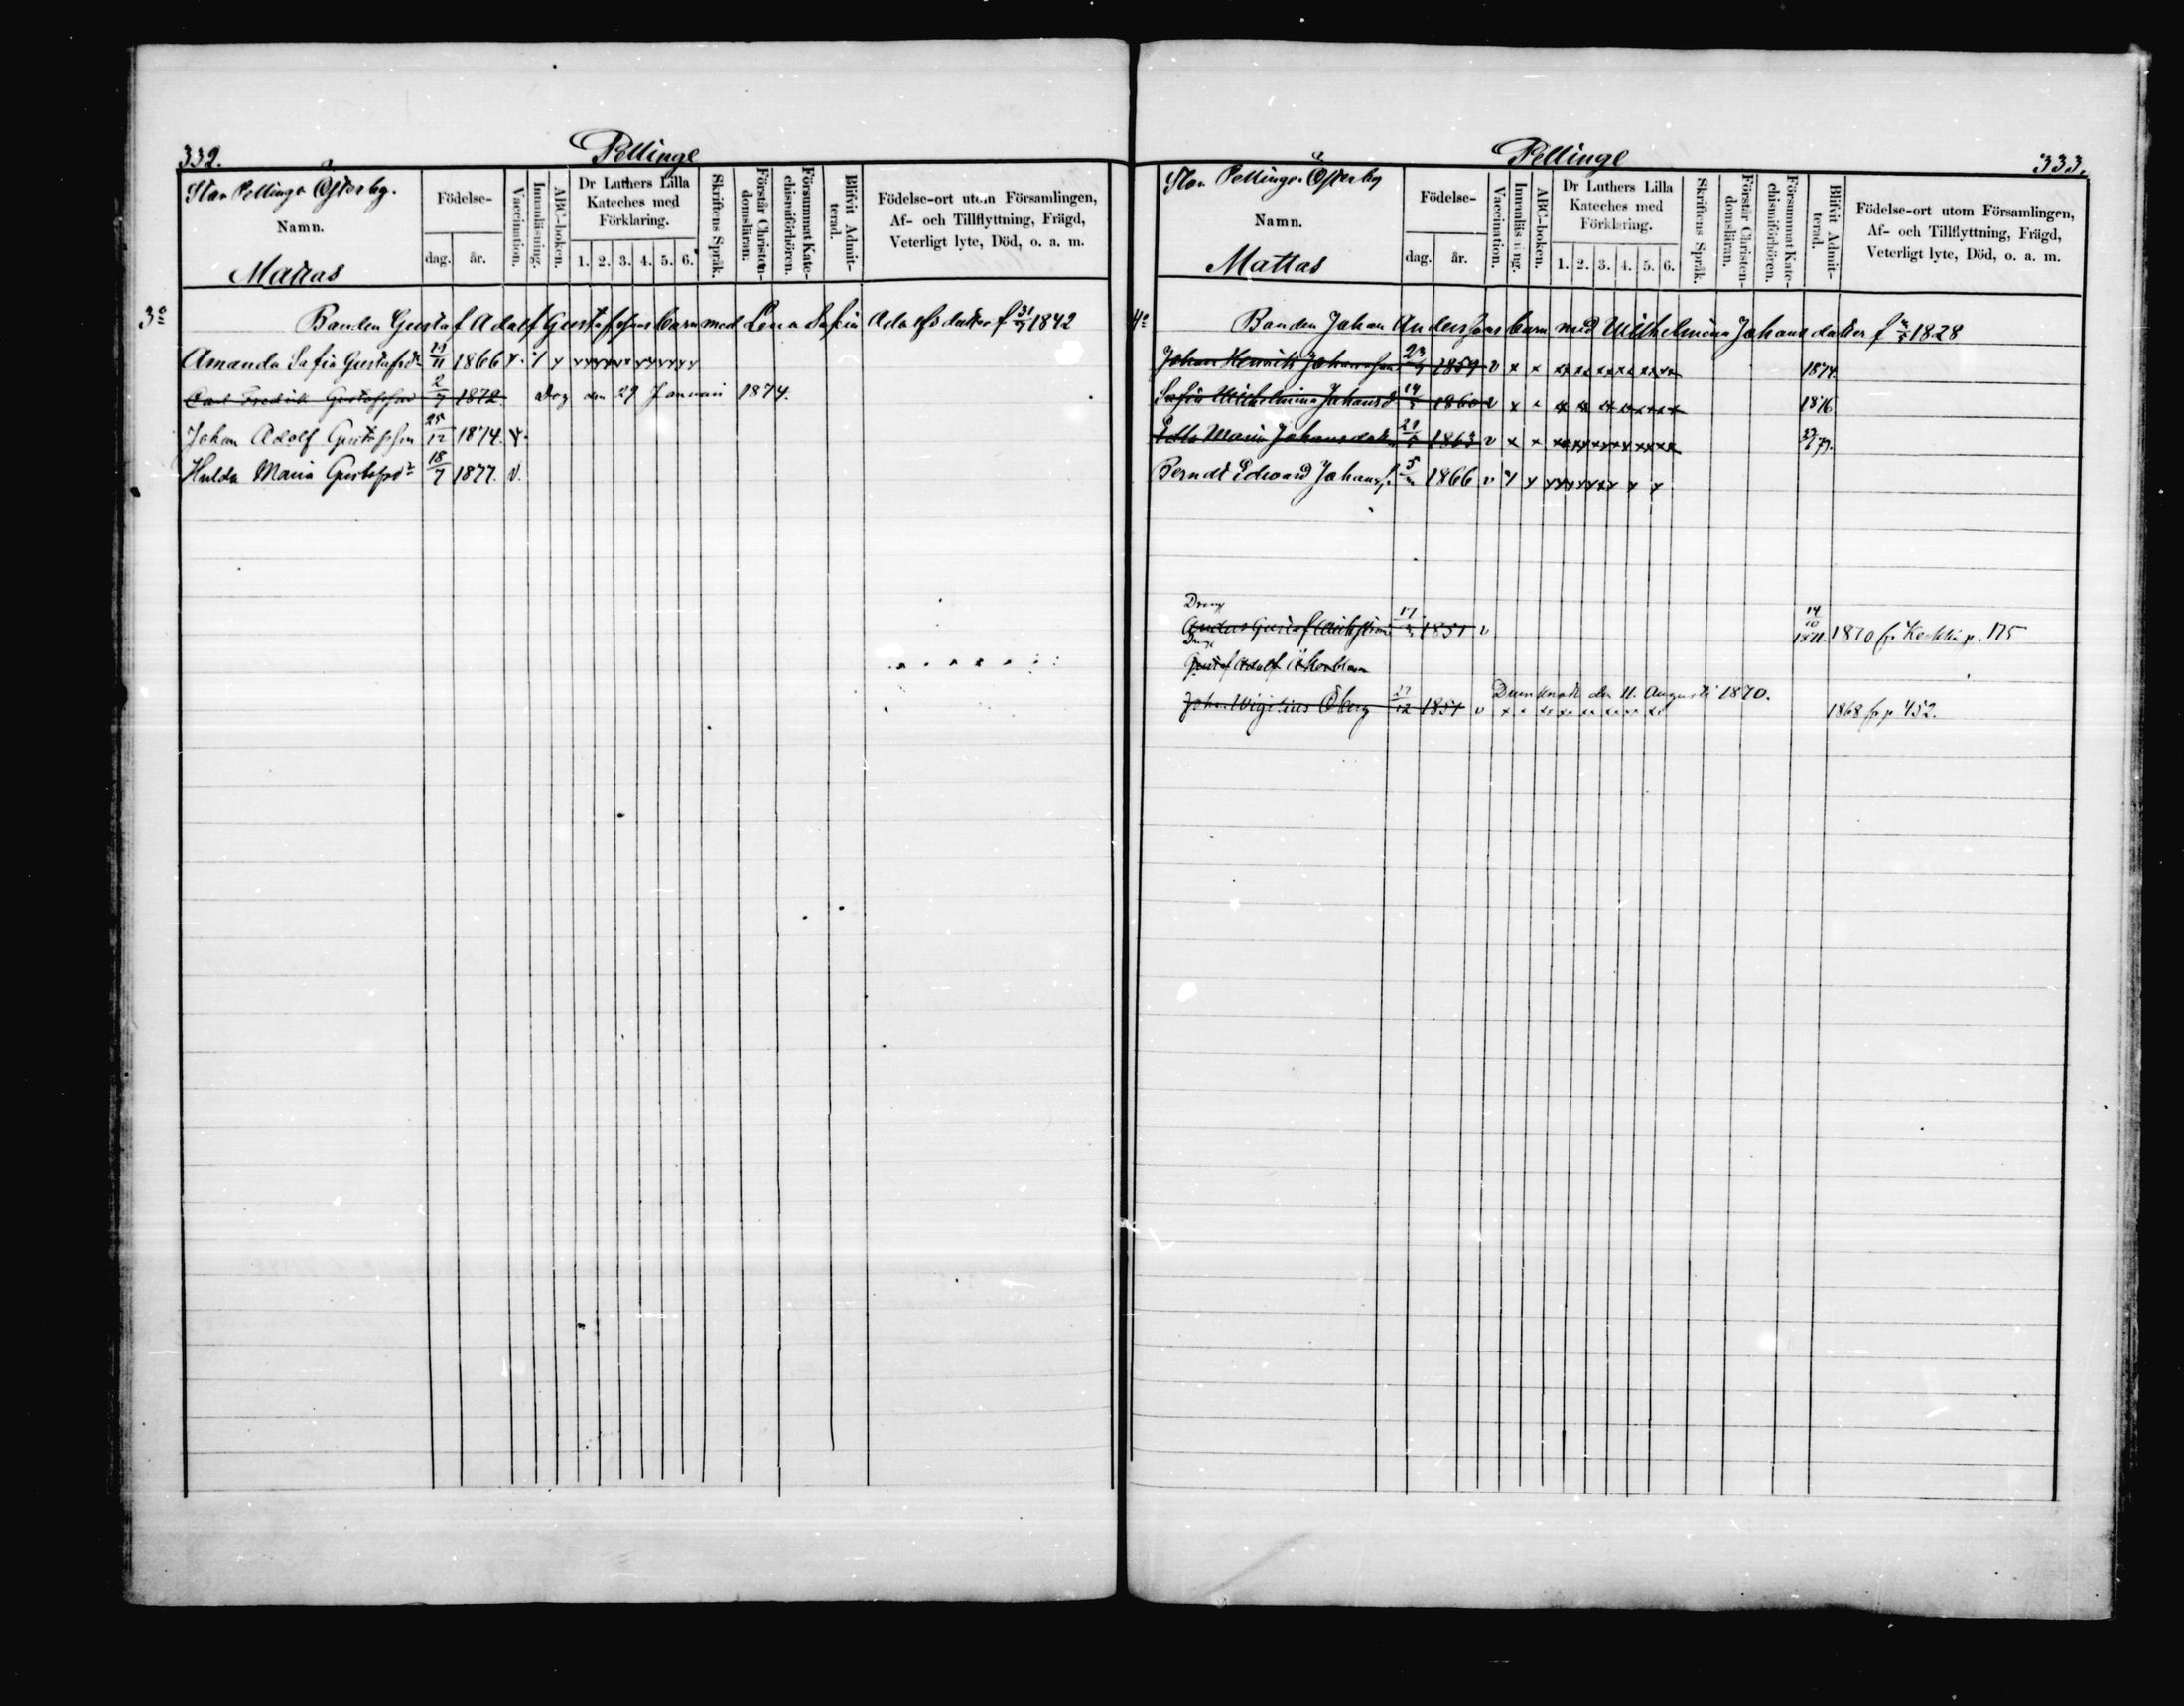 332.
Pellinge
Stor Pellinge Österby.
Namn.
Mattas
Födelse-
dag.
år.
Vaccination.
Innanläsning.
ABC-boken.
Dr Luthers Lilla
Kateches med
Förklaring.
1. 2. 3. 4. 5. 6.
Skriftens Språk.
Förstår Christen-
domsläran.
Försummat Kate-
chismiförhören.
Blifvit Admit-
terad.
Födelse-ort utom Församlingen,
Af- och Tillflyttning, Frägd,
Veterligt lyte, Död, o. a. m.
3o Bonden Gustaf Adolf Gustafssons barn med Lena Sofia Adolfsdotter f 31/7 1842
Amanda Sofia Gustafsdr 1866
Carl Fredrik Gustafsson 2/7 1872. Dog den 29 Januari 1874.
Johan Adolf Gustafsson 25/12 1874. v.
Hulda Maria Gustafsdr 18/7 1877. v.
Pellinge
333.
Stor Pellinge Österby
Namn.
Mattas
Födelse-
dag.
år.
Vaccination.
Innanläsning.
ABC-boken.
Dr Luthers Lilla
Kateches med
Förklaring.
1. 2. 3. 4. 5. 6.
Skriftens Språk.
Förstår Christen-
domsläran.
Försummat Kate-
chismiförhören.
Blifvit Admit-
terad.
Födelse-ort utom Församlingen,
Af- och Tillflyttning, Frägd,
Veterligt lyte, Död, o. a. m.
4o Bonden Johan Anderssons barn med Wilhelmina Johansdotter f 1828
Johan Henrik Johansson 1859 v x x 1874.
Sofia Wilhelmina Johansd 1860 v x x 1876
Maria Johansdotter 1863 v x x
Berndt Edvard Johanss. 1866 v
Dreng
Anders Gustaf 1851 v 14/10 1871. 1870 fr p. 175
Dreng
Gustaf Adolf
Drunknade den 11. Augusti 1870.
Öberg 27/12 1851 v 1868 fr p. 452.